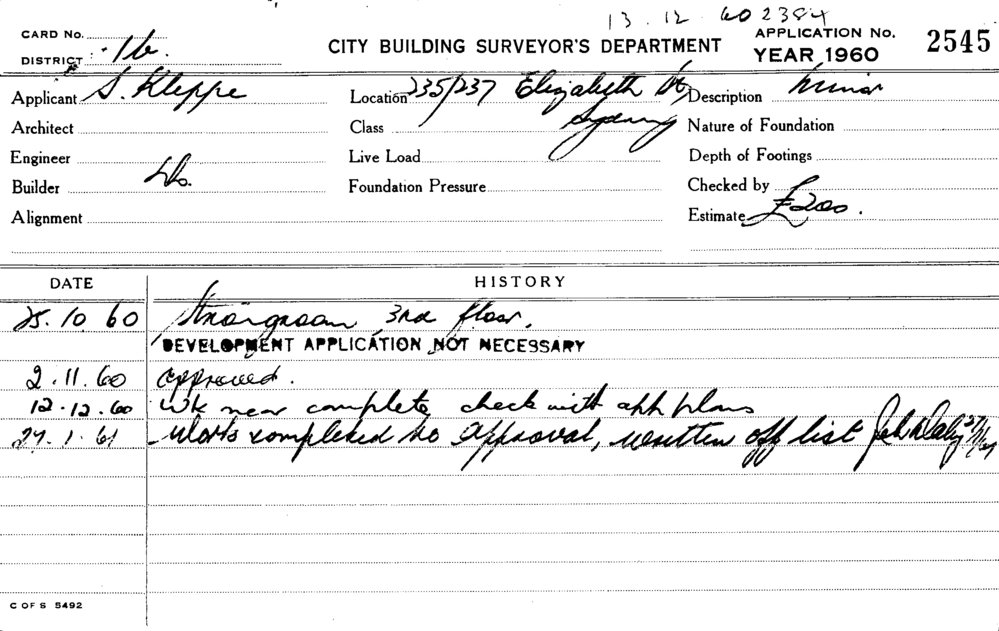 13.12.60 2384
CARD No.
DISTRICT 16.
CITY BUILDING SURVEYOR'S DEPARTMENT
APPLICATION No. 2545
YEAR 1960
Applicant S. Kleppe Location 235/237 Elizabeth St, Description Minor
Sydney
Architect Class Nature of Foundation
Engineer Live Load Depth of Footings
Builder Do. Foundation Pressure Checked by
Alignment Estimate £200.
DATE HISTORY
25.10 60 Strongroom 3rd floor.
DEVELOPMENT APPLICATION NOT NECESSARY
2.11.60 approved.
12.12.60 Wk near complete check with app plans
27.1.61 Works completed to approval, written off list
C OF S 5492